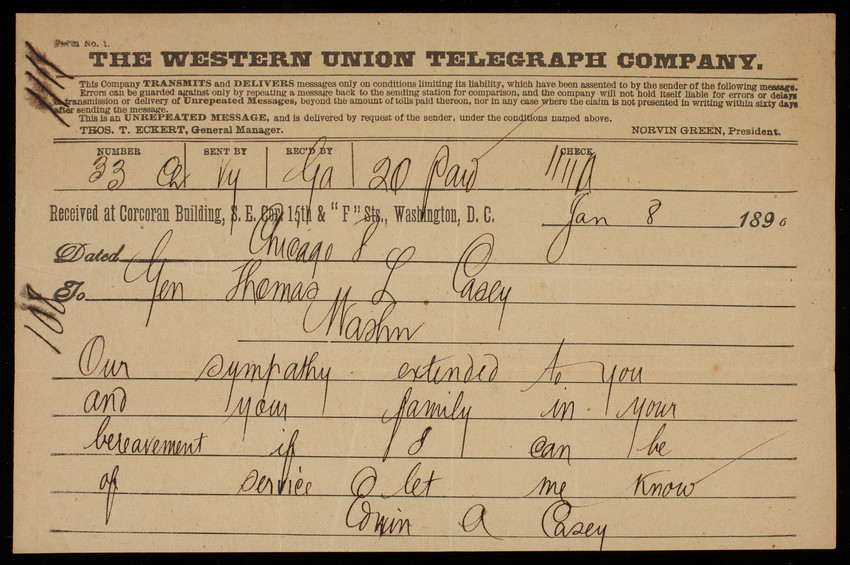 Form No. 1.
THE WESTERN UNION TELEGRAPH COMPANY.
This Company TRANSMITS and DELIVERS messages only on conditions limiting its liability, which have been assented to by the sender of the following message.
Errors can be guarded against only by repeating a message back to the sending station for comparison, and the company will not hold itself liable for errors or delays
in transmission or delivery of Unrepeated Messages, beyond the amount of tolls paid thereon, nor in any case where the claim is not presented in writing within sixty days
after sending the message.
This is an UNREPEATED MESSAGE, and is delivered by request of the sender, under the conditions named above.
THOS. T. ECKERT, General Manager. NORVIN GREEN, President.
NUMBER SENT BY REC'D BY CHECK
33 Vy Ga 20 Paid
Received at Corcoran Building, S. E. Cor. 15th & "F" Sts., Washington, D. C. Jan 8 1890
Dated Chicago 8
To Gen Thomas L Casey
Washn
Our sympathy extended to you
and your family in your
bereavement if I can be
of service let me know
Edwin A Casey